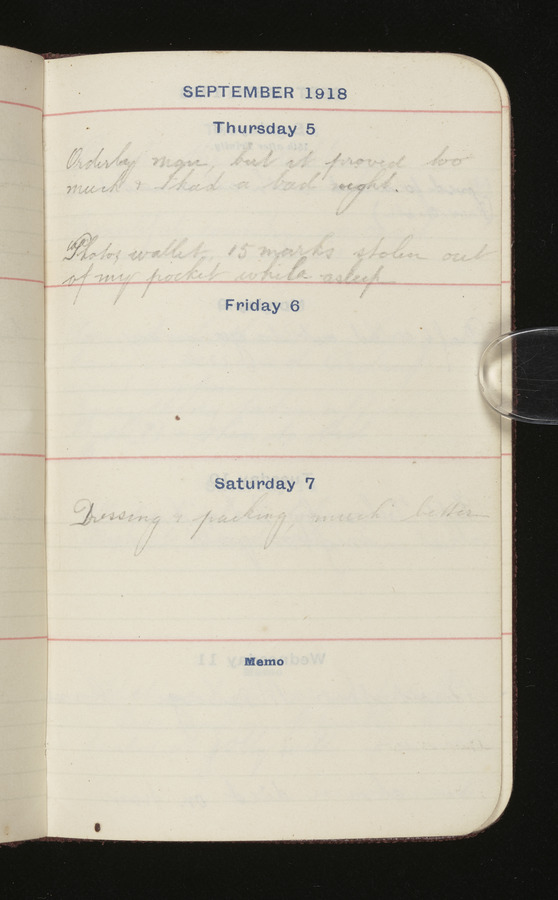 SEPTEMBER 1918
Thursday 5
Orderly man, but it proved too
much & I had a bad night.
Photos wallet, 15 marks stolen out
of my pocket while asleep
Friday 6
Saturday 7
Dressing & packing, much better
Memo